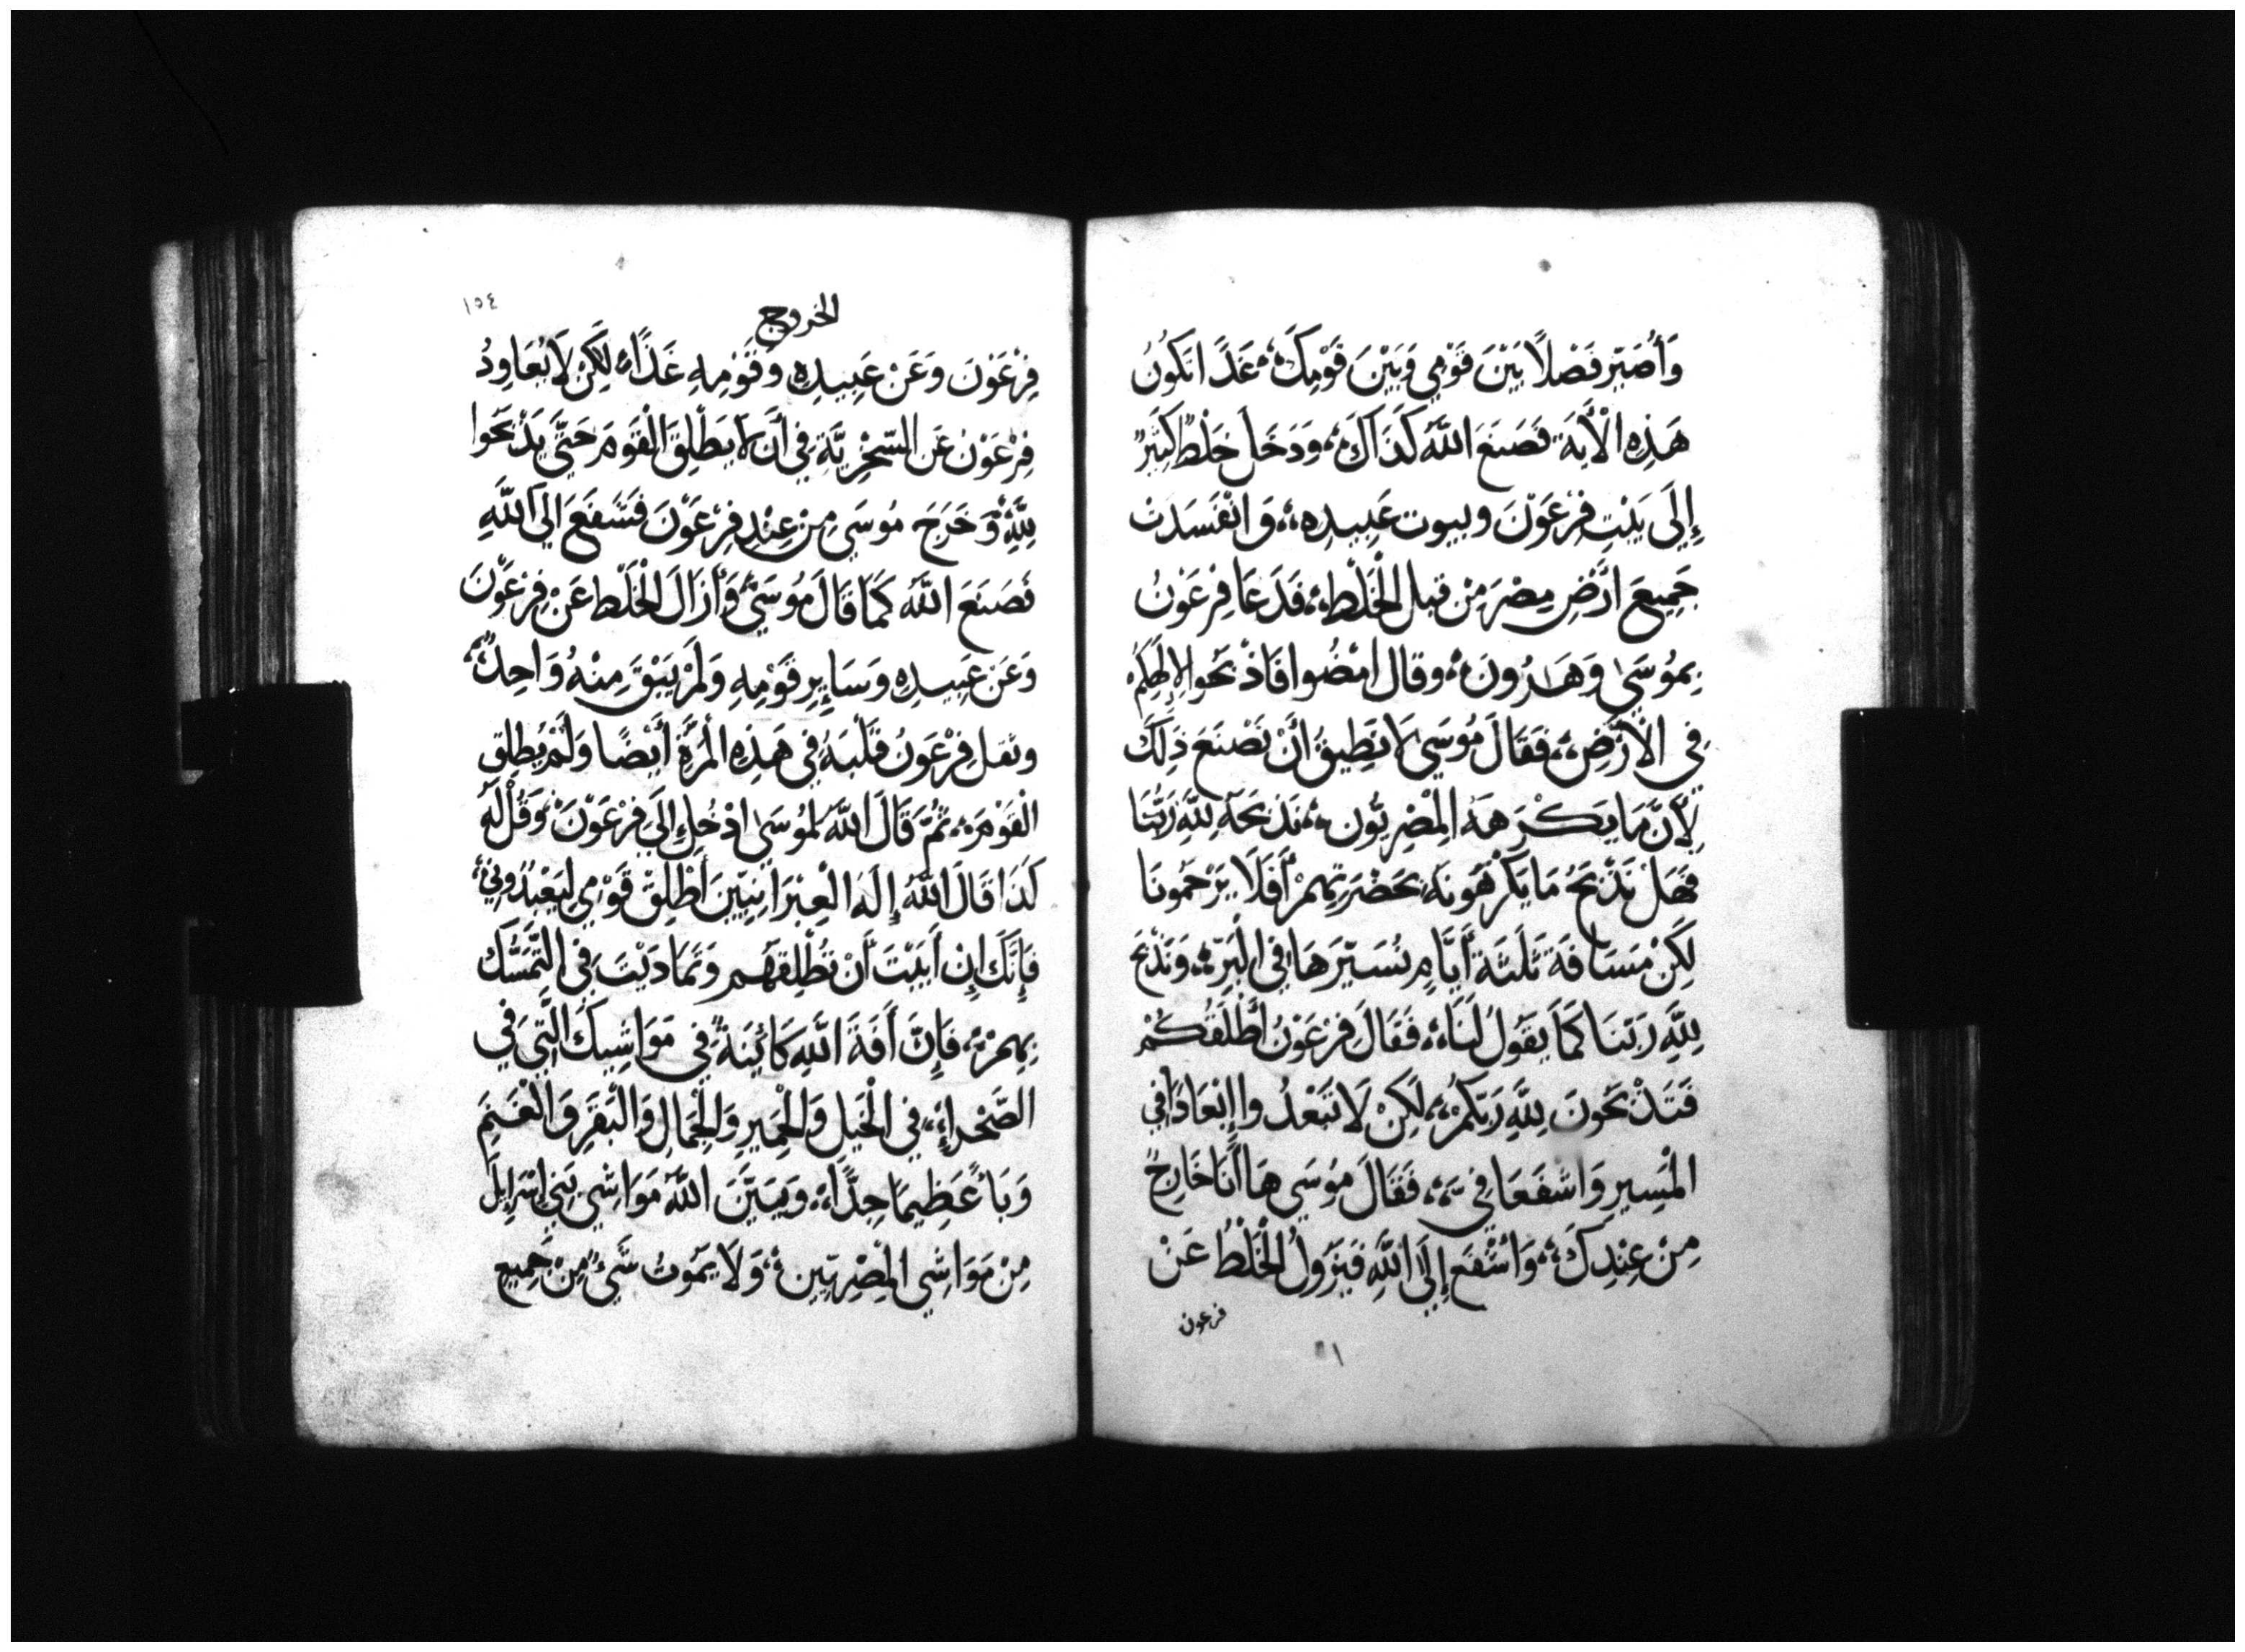 وَأُصَيِّر فَصْلاً بَيْنَ قَوْمِي وَبَيْنَ قَوْمِكَ، غَدًا تَكُونُ
هَذِهِ الْأَيَةَ فَصَنَعَ اللَّهُ كَذَاكَ، وَدَخَلَ خَلْطٌ كَثِيرٌ
إِلَى بَيْتِ فِرْعَوْنَ وبيوت عَبِيدِهِ، وَانْفَسَدَتْ
جَمِيعَ ارْضِ مِصْرَ مِنْ قبل الْخَلْطِ، فَدَعَا فِرْعَوْنُ
بِمُوسَى وَهَرُونَ، وقال امْضُوا فَاذْبَحُوا لِإِلَهِكُمْ
فِي الْأَرْضِ، فَقَالَ مُوسَى لَا نَطِيقُ أَنْ نَصْنَعَ ذِلَكَ
لِأَنَّ مَا يَكْرَهَهُ الْمِصْرِيُّون، نَذْبَحَهُ لِلَّهِ رَبُّنَا
فَهَلْ نَذْبَحُ مَا يَكْرَهُونَهُ بَحَضْرَتِهِمْ أَفَلَا يَرْجُمُونَا
لَكِنْ مَسَافَةَ ثَلَثَةَ أَيَّامٍ نُسَيِّرَهَا فِي الْبَرِّ، وَنَذْبَحُ
لِلَّهِ رَبِّنَا كَمَا يَقُولُ لَنَا، فَقَالَ فِرْعَوْنُ أُطْلَقَكُمْ
فَتَذْبَحُونَ لِلَّهِ رَبِّكُمْ، لَكِنْ لَا تَبْعُدُوا إِبْعَادًا فِي
الْمَسِيرِ وَاشْفَعَا فِيَّ، فَقَالَ مُوسَى هَا أَنَا خَارِجٌ
مِنْ عِنْدِكَ، وَاشْفَعُ إِلَى اللَّهِ فَيَزُولُ الْخَلْطُ عَنْ
فرعون
١٥٤
الخروج
فِرْعَوْنَ وَعَنْ عَبِيدِهِ وَقَوْمِهِ غَدًا، لَكِنْ لَا يُعَاوِدُ
فِرْعَوْنُ عَن السّخْرِيَّةِ فِي أَن لَا يَطْلِقَ الْقَوْمَ حَتَّى يَذْبَحُوا
لِلَّهِ، وَخَرَجَ مُوسَى مِنْ عِنْدِ فِرْعَوْنَ فَشَفَعَ الَى اللَّهِ
فَصَنَعَ اللَّهُ كَمَا قَالَ مُوسَى، وَأَزَالَ الْخَلْط عَنْ فِرْعَوْنَ
وَعَن عَبِيدِهِ وَسَايِرِ قَوْمِهِ وَلَمْ يَبْقَ مِنْهُ وَاحِدٌ،
وثقل فِرْعَوْنُ قَلْبَهُ فِي هَذِهِ الْمَرَّةِ أَيْضًا وَلَمْ يُطْلِقِ
الْقَوْمَ، ثُمَّ قَالَ اللَّهُ لِمُوسَى ادْخُلْ إِلَى فِرْعَوْنَ، وَقُلْ لَهُ
كَذَا قَالَ اللَّهُ إِلَهُ الْعِبْرَانِيِّينَ أَطْلِقْ قَوْمِي لِيَعْبُدُونِي،
فَإِنَّكَ إِن أَبَيْتَ أَنْ تُطْلِقَهُم وَتَمَادَيْتَ فِي التَّمَسُّك
بِهِمْ، فَإِنَّ أَفَةَ اللَّهِ كَائِنَةٌ فِي مَوَاشِيكَ الَّتِي فِي
الصَّحْراءِ، فِي الْخَيْلِ وَالْحَمِيرِ وَالْجِمَالِ وَالْبَقَرِ وَالْغَنَمِ
وَبَأً عَظِيمًا جِدًّا، وَيَبَيِّنَ اللَّهُ مَوَاشِي بَنِي إِسْرَايِلَ
مِنْ مَوَاشِي الْمِصْرِيّين، وَلَا يَمُوتُ شَيْءٌ مِنْ جَمِيعِ